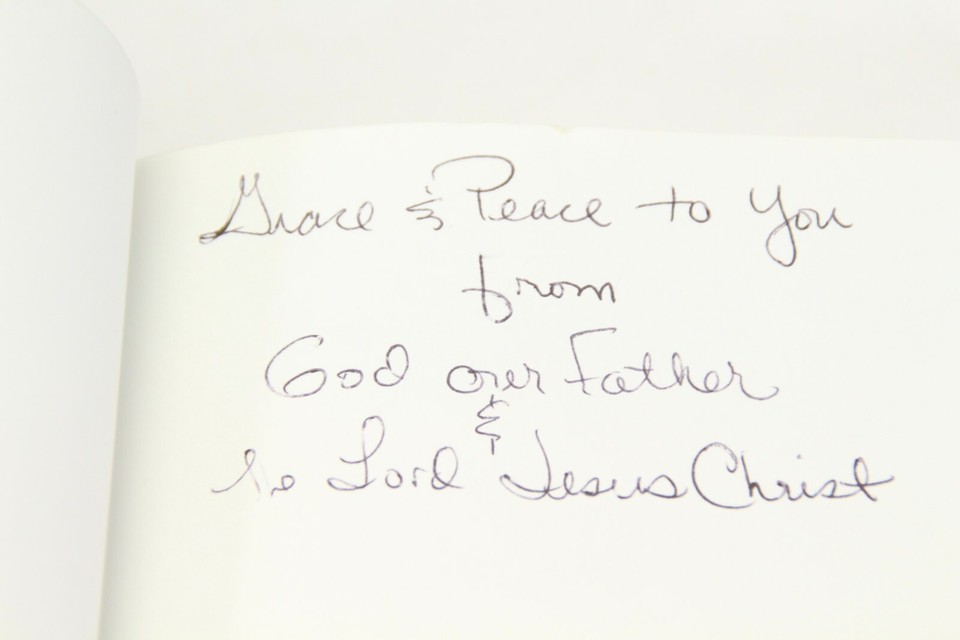 Grace & Peace to You
from
God our Father
&
Lord Jesus Christ